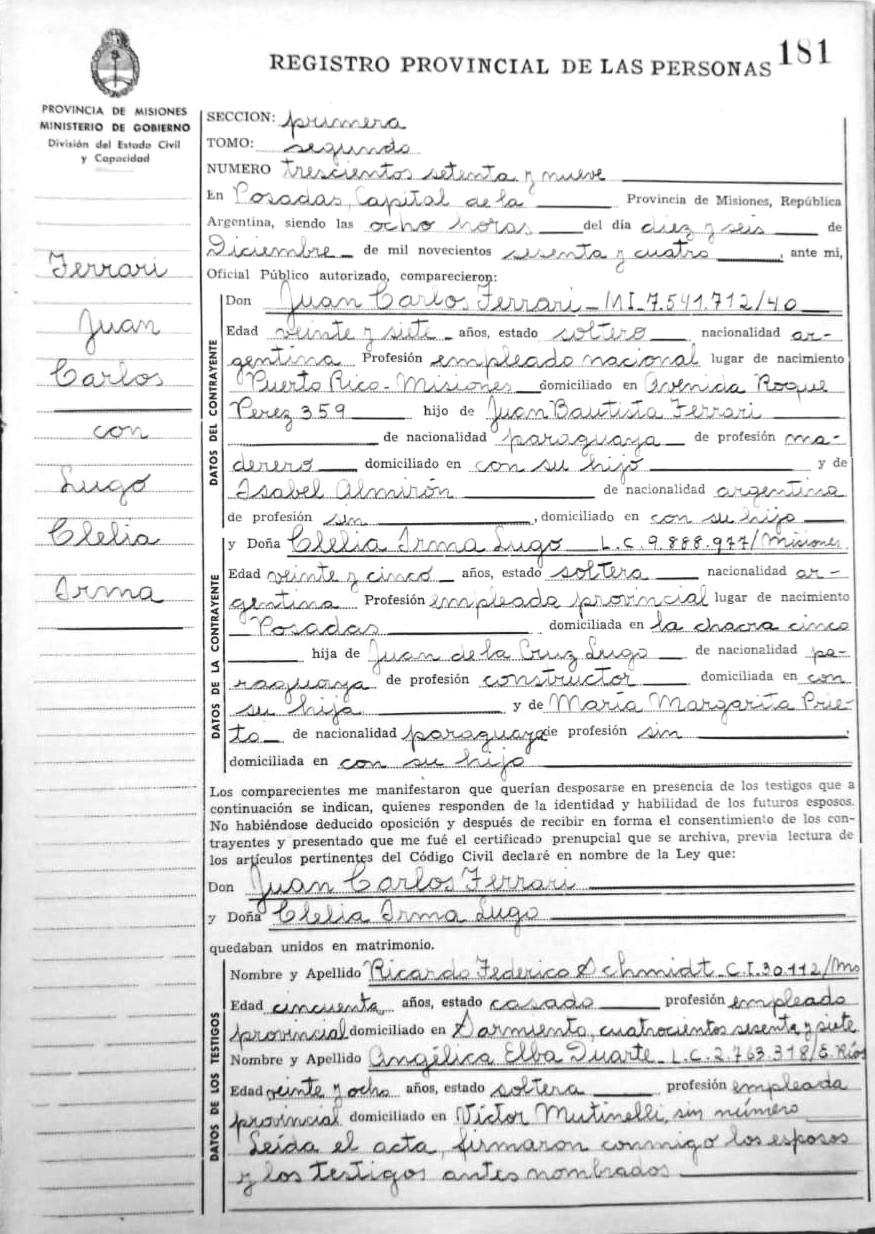 REGISTRO PROVINCIAL DE LAS PERSONAS 181
PROVINCIA DE MISIONES
MINISTERIO DE GOBIERNO
División del Estado Civil
y Capacidad
Ferrari
Juan
Carlos
con
Lugo
Clelia
Irma
SECCION: primera
TOMO: segundo
NUMERO trescientos setenta y nueve
En Posadas, Capital de la Provincia de Misiones, República
Argentina, siendo las ocho horas del día diez y seis de
Diciembre de mil novecientos sesenta y cuatro, ante mí,
Oficial Público autorizado, comparecieron:
DATOS DEL CONTRAYENTE
Don Juan Carlos Ferrari - MI. 7.541.712/40
Edad veinte y siete años, estado soltero nacionalidad ar-
gentina Profesión empleado nacional lugar de nacimiento
Puerto Rico - Misiones domiciliado en Avenida Roque
Perez 359 hijo de Juan Bautista Ferrari
de nacionalidad paraguaya de profesión ma-
derero domiciliado en con su hijo y de
Isabel Almirón de nacionalidad argentina
de profesión sin, domiciliado en con su hijo
DATOS DE LA CONTRAYENTE
y Doña Clelia Irma Lugo L.C. 9.888.977/Misiones.
Edad veinte y cinco años, estado soltera nacionalidad ar-
gentina Profesión empleada provincial lugar de nacimiento
Posadas domiciliada en la chacra cinco
hija de Juan de la Cruz Lugo de nacionalidad pa-
raguaya de profesión constructor domiciliada en con
su hija y de María Margarita Prie-
to de nacionalidad paraguaya de profesión sin,
domiciliada en con su hija
Los comparecientes me manifestaron que querían desposarse en presencia de los testigos que a
continuación se indican, quienes responden de la identidad y habilidad de los futuros esposos.
No habiéndose deducido oposición y después de recibir en forma el consentimiento de los con-
trayentes y presentado que me fué el certificado prenupcial que se archiva, previa lectura de
los artículos pertinentes del Código Civil declaré en nombre de la Ley que:
Don Juan Carlos Ferrari
y Doña Clelia Irma Lugo
quedaban unidos en matrimonio.
DATOS DE LOS TESTIGOS
Nombre y Apellido Ricardo Federico Schmidt C.I. 30.112/Ms
Edad cincuenta, años, estado casado profesión empleado
provincial domiciliado en Sarmiento, cuatrocientos sesenta y siete
Nombre y Apellido Angélica Elba Duarte - L.C. 2.763.318/E. Ríos
Edad veinte y ocho años, estado soltera profesión empleada
provincial domiciliado en Víctor Mutinelli, sin número
Leída el acta, firmaron conmigo los esposos
y los testigos antes nombrados